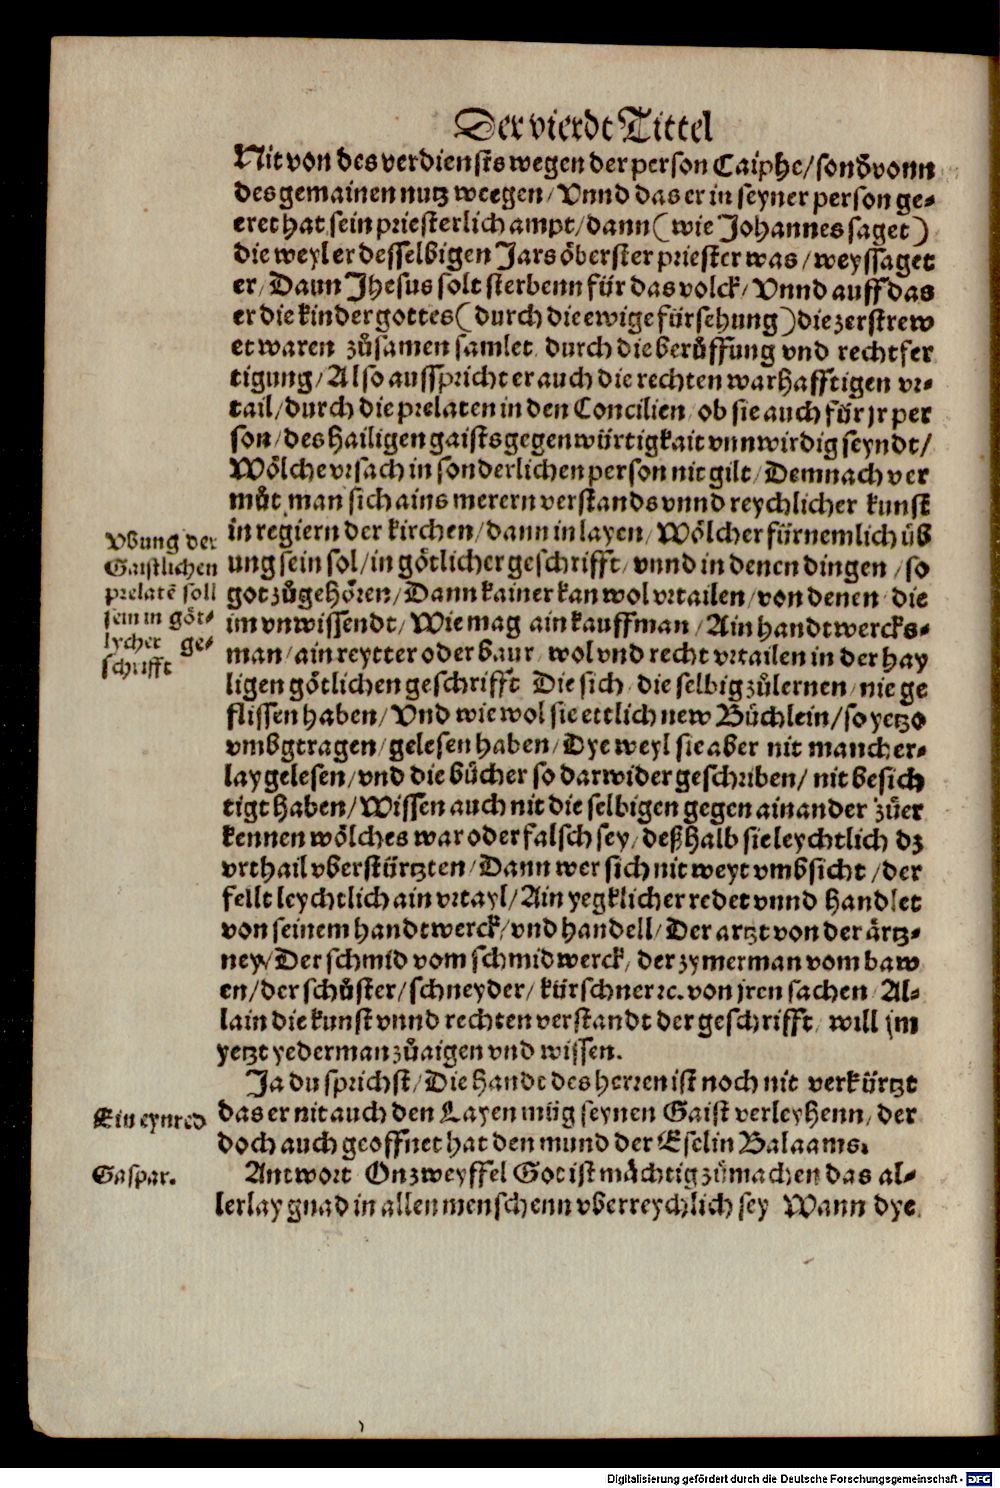 Der vierdt Tittel
Nit von des verdiensts wegen der person Caiphe/sonđ vonn
des gemainen nutz weegen/Vnnd das er in seyner person ge-
eret hat sein priesterlich ampt/dann (wie Johannes saget)
die weyl er desselbigen Jars öberster priester was/weyssaget
er/Dann Jhesus solt sterbenn für das volck/Vnnd auff das
er die kinder gottes (durch die ewige fürsehung) die zerstrew
et waren zůsamen samlet durch die berůffung vnd rechtfer
tigung/Also ausspricht er auch die rechten warhafftigen vr-
tail/durch die prelaten in den Concilien/ob sie auch für jr per
son/des hailigen gaists gegenwürtigkait vnnwirdig seyndt/
Wölche vrsach in sonderlichen person nit gilt/Demnach ver
můt man sich ains merern verstands vnnd reychlicher kunst
in regiern der kirchen/dann in layen/Wölcher fürnemlich üb
ung sein sol/in götlicher geschrifft/vnnd in denen dingen/so
got zůgehören/Dann kainer kan wol vrtailen/von denen die
im vnwissendt/Wie mag ain kauffman/Ain handtwercks-
man/ain reytter oder baur/wol vnd recht vrtailen in der hay
ligen götlichen geschrifft Die sich/die selbig zůlernen/nie ge
flissen haben/Vnd wie wol sie ettlich new Büchlein/so yetzo
vmbgtragen/gelesen haben/Dye weyl sie aber nit mancher-
lay gelesen/vnd die bücher so darwider geschriben/nit besich
tigt haben/Wissen auch nit die selbigen gegen ainander zůer
kennen wölches war oder falsch sey/deßhalb sie leychtlich dz
vrthail vberstürtzten/Dann wer sich nit weyt vmbsicht/der
fellt leychtlich ain vrtayl/Ain yegklicher redet vnnd handlet
von seinem handtwerck/vnd handell/Der artzt von der ärtz-
ney/Der schmid vom schmidwerck/der zymerman vom baw
en/der schůster/schneyder/kürschner ꝛc. von jren sachen/Al-
lain die kunst vnnd rechten verstandt der geschrifft/will jm
yetzt yederman zůaigen vnd wissen.
Ja du sprichst/Die handt des herren ist noch nit verkürtzt
das er nit auch den Layen müg seynen Gaist verleyhenn/der
doch auch geoffnet hat den mund der Eselin Balaams.
Antwort Onzweyffel Got ist mächtig zůmachen das al-
lerlay gnad in allen menschenn vberreychlich sey Wann dye
Vbung der
Gaistlichen
prelatē soll
sein in göt-
lycher ge-
schrifft
Ein eynred
Gaspar.
Digitalisierung gefördert durch die Deutsche Forschungsgemeinschaft - DFG